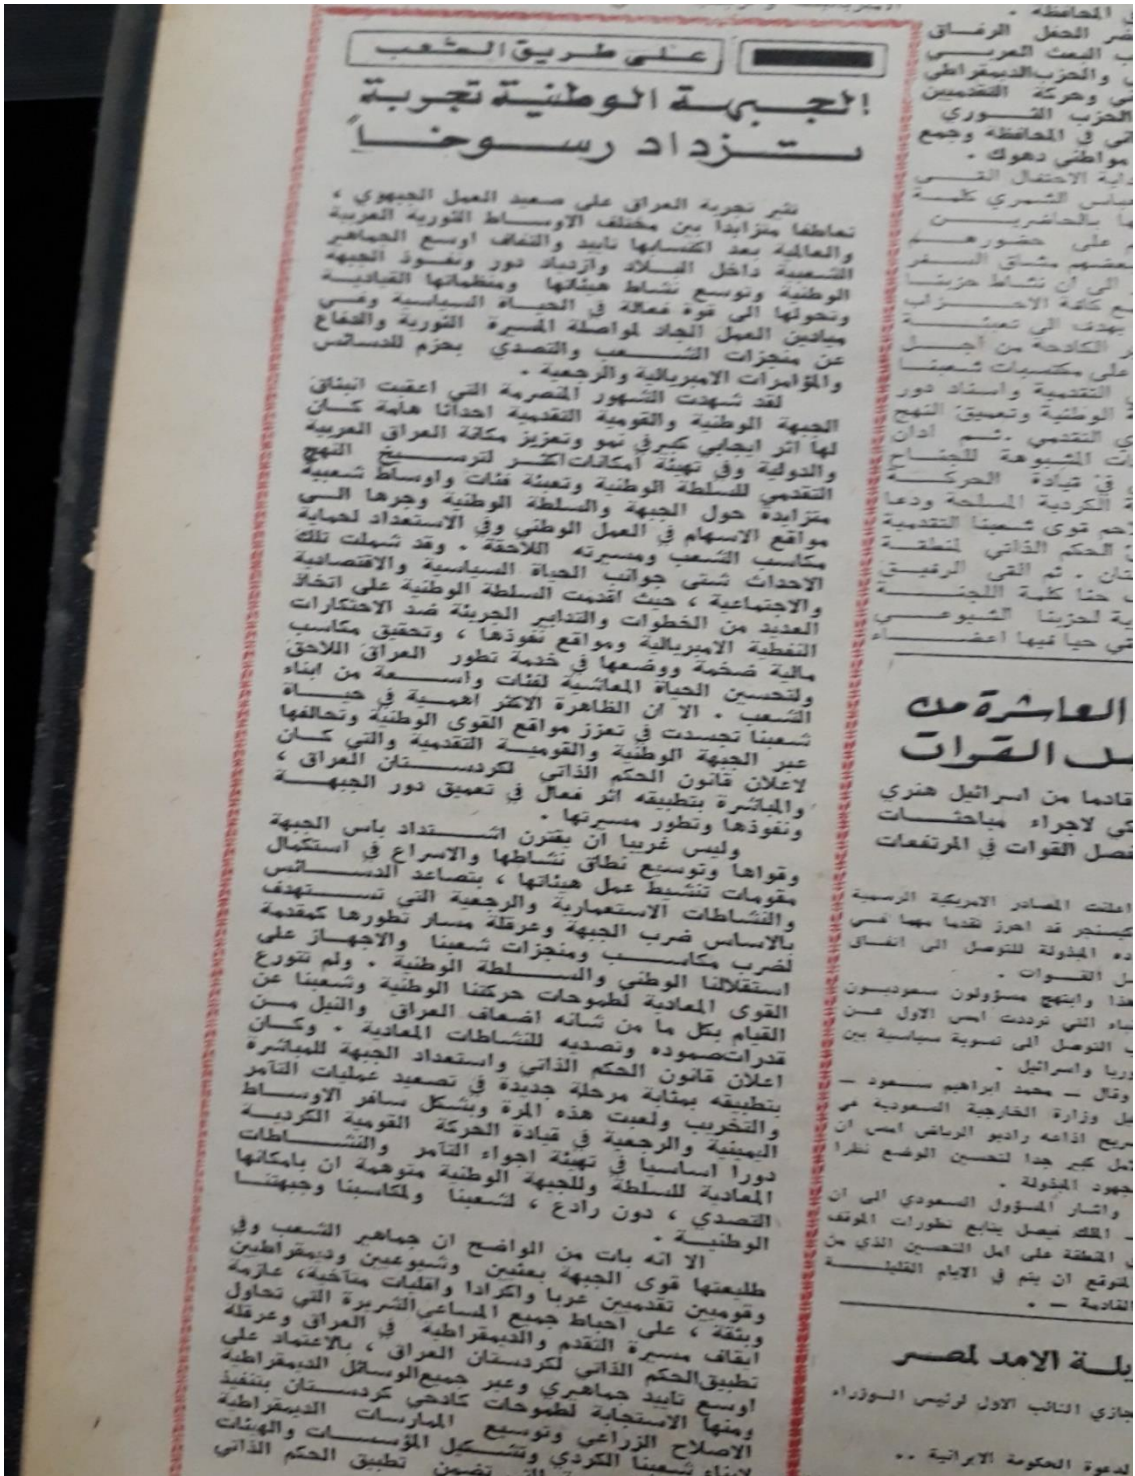 على طريق الشعب
الجبهة الوطنية تجربة
تزداد رسوخاً
تثير تجربة العراق على صعيد العمل الجبهوي ،
تعاطفا متزايدا بين مختلف الاوساط الثورية العربية
والعالمية بعد اكتسابها تاييد والتفاف اوسع الجماهير
الشعبية داخل البلاد وازدياد دور ونفوذ الجبهة
الوطنية وتوسع نشاط هيئاتها ومنظماتها القيادية
وتحولها الى قوة فعالة في الحياة السياسية وفي
ميادين العمل الجاد لمواصلة المسيرة الثورية والدفاع
عن منجزات الشعب والتصدي بحزم للدسائس
والمؤامرات الامبريالية والرجعية .
لقد شهدت الشهور المنصرمة التي اعقبت انبثاق
الجبهة الوطنية والقومية التقدمية احداثا هامة كان
لها اثر ايجابي كبير في نمو وتعزيز مكانة العراق العربية
والدولية وفي تهيئة امكانات اكثر لترسيخ النهج
التقدمي للسلطة الوطنية وتعبئة فئات واوساط شعبية
متزايدة حول الجبهة والسلطة الوطنية وجرها الى
مواقع الاسهام في العمل الوطني وفي الاستعداد لحماية
مكاسب الشعب ومسيرته اللاحقة . وقد شملت تلك
الاحداث شتى جوانب الحياة السياسية والاقتصادية
والاجتماعية ، حيث اقدمت السلطة الوطنية على اتخاذ
العديد من الخطوات والتدابير الجريئة ضد الاحتكارات
النفطية الامبريالية ومواقع نفوذها ، وتحقيق مكاسب
مالية ضخمة ووضعها في خدمة تطور العراق اللاحق
ولتحسين الحياة المعاشية لفئات واسعة من ابناء
الشعب . الا ان الظاهرة الاكثر اهمية في حياة
شعبنا تجسدت في تعزز مواقع القوى الوطنية وتحالفها
عبر الجبهة الوطنية والقومية التقدمية والتي كان
لاعلان قانون الحكم الذاتي لكردستان العراق ،
والمباشرة بتطبيقه اثر فعال في تعميق دور الجبهة
ونفوذها وتطور مسيرتها .
وليس غريبا ان يقترن اشتداد باس الجبهة
وقواها وتوسيع نطاق نشاطها والاسراع في استكمال
مقومات تنشيط عمل هيئاتها ، بتصاعد الدسائس
والنشاطات الاستعمارية والرجعية التي تستهدف
بالاساس ضرب الجبهة وعرقلة مسار تطورها كمقدمة
لضرب مكاسب ومنجزات شعبنا والاجهاز على
استقلالنا الوطني والسلطة الوطنية . ولم تتورع
القوى المعادية لطموحات حركتنا الوطنية وشعبنا عن
القيام بكل ما من شانه اضعاف العراق والنيل من
قدرات صموده وتصديه للنشاطات المعادية . وكان
اعلان قانون الحكم الذاتي واستعداد الجبهة للمباشرة
بتطبيقه بمثابة مرحلة جديدة في تصعيد عمليات التآمر
والتخريب ولعبت هذه المرة وبشكل سافر الاوساط
اليمينية والرجعية في قيادة الحركة القومية الكردية
دورا اساسيا في تهيئة اجواء التآمر والنشاطات
المعادية للسلطة وللجبهة الوطنية متوهمة ان بامكانها
التصدي ، دون رادع ، لشعبنا ولمكاسبنا وجبهتنا
الوطنية .
الا انه بات من الواضح ان جماهير الشعب وفي
طليعتها قوى الجبهة بعثيين وشيوعيين وديمقراطيين
وقوميين تقدميين عربا واكرادا واقليات متآخية، عازمة
وبثقة ، على احباط جميع المساعي الشريرة التي تحاول
ايقاف مسيرة التقدم والديمقراطية في العراق وعرقلة
تطبيق الحكم الذاتي لكردستان العراق ، بالاعتماد على
اوسع تاييد جماهيري وعبر جميع الوسائل الديمقراطية
ومنها الاستجابة لطموحات كادحي كردستان بتنفيذ
الاصلاح الزراعي وتوسيع الممارسات الديمقراطية
لابناء شعبنا الكردي وتشكيل المؤسسات والهيئات
تضمن تطبيق الحكم الذاتي
المحافظة .
الحفل الرفاق
البعث العربي
والحزب الديمقراطي
وحركة التقدميين
الحزب الثوري
في المحافظة وجمع
مواطني دهوك .
بداية الاحتفال القى
عباس الشمري كلمة
بالحاضرين
على حضورهم
بعضهم مشاق السفر
الى ان نشاط حزبنا
كافة الاحزاب
يهدف الى تعبئة
الكادحة من اجل
على مكتسبات شعبنا
التقدمية واسناد دور
الوطنية وتعميق النهج
التقدمي . ثم ادان
المشبوهة للجناح
في قيادة الحركة
الكردية المسلحة ودعا
تلاحم قوى شعبنا التقدمية
الحكم الذاتي لمنطقة
ثم القى الرفيق
حنا كلمة اللجنة
لحزبنا الشيوعي
حيا فيها اعضاء
العاشرة من
القوات
قادما من اسرائيل هنري
لاجراء مباحثات
فصل القوات في المرتفعات
اعلنت المصادر الامريكية الرسمية
كيسنجر قد احرز تقدما مهما في
المبذولة للتوصل الى اتفاق
القوات .
هذا وابتهج مسؤولون سعوديون
التي ترددت امس الاول عن
التوصل الى تسوية سياسية بين
واسرائيل .
وقال — محمد ابراهيم سعود —
وزارة الخارجية السعودية في
اذاعه راديو الرياض امس ان
كبير جدا لتحسين الوضع نظرا
المبذولة .
واشار المسؤول السعودي الى ان
الملك فيصل يتابع تطورات الموقف
المنطقة على امل التحسين الذي من
المتوقع ان يتم في الايام القليلة
القادمة — .
الامد لمصر
حجازي النائب الاول لرئيس الوزراء
لدعوة الحكومة الايرانية ..